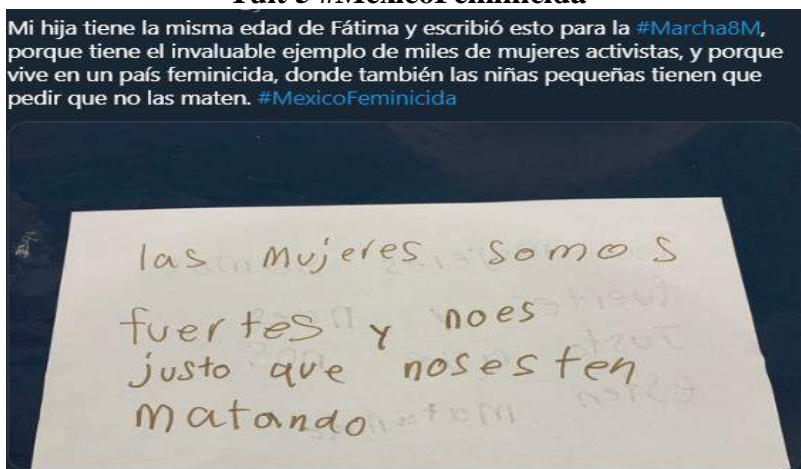 Tuit 5 #MexicoFeminicida
Mi hija tiene la misma edad de Fátima y escribió esto para la #Marcha8M,
porque tiene el invaluable ejemplo de miles de mujeres activistas, y porque
vive en un país feminicida, donde también las niñas pequeñas tienen que
pedir que no las maten. #MexicoFeminicida
las Mujeres somos
fuertes y noes
justo que nosesten
matando